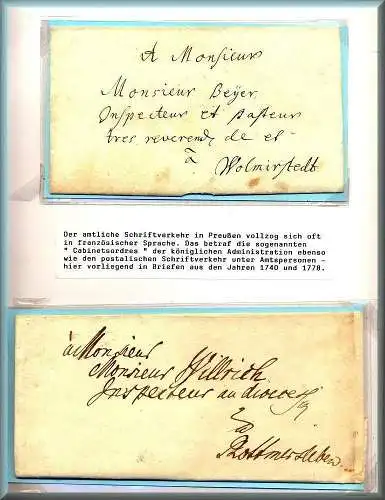 A Monsieur
Monsieur Beÿer,
Inspecteur et Pasteur
tres reverend, de et
à
Wolmirstedt
Der amtliche Schriftverkehr in Preußen vollzog sich oft
in französischer Sprache. Das betraf die sogenannten
" Cabinetsordres " der königlichen Administration ebenso
wie den postalischen Schriftverkehr unter Amtspersonen -
hier vorliegend in Briefen aus den Jahren 1740 und 1778.
à Monsieur
Monsieur Willrich
Inspecteur au diocese
à
Rottmersleben